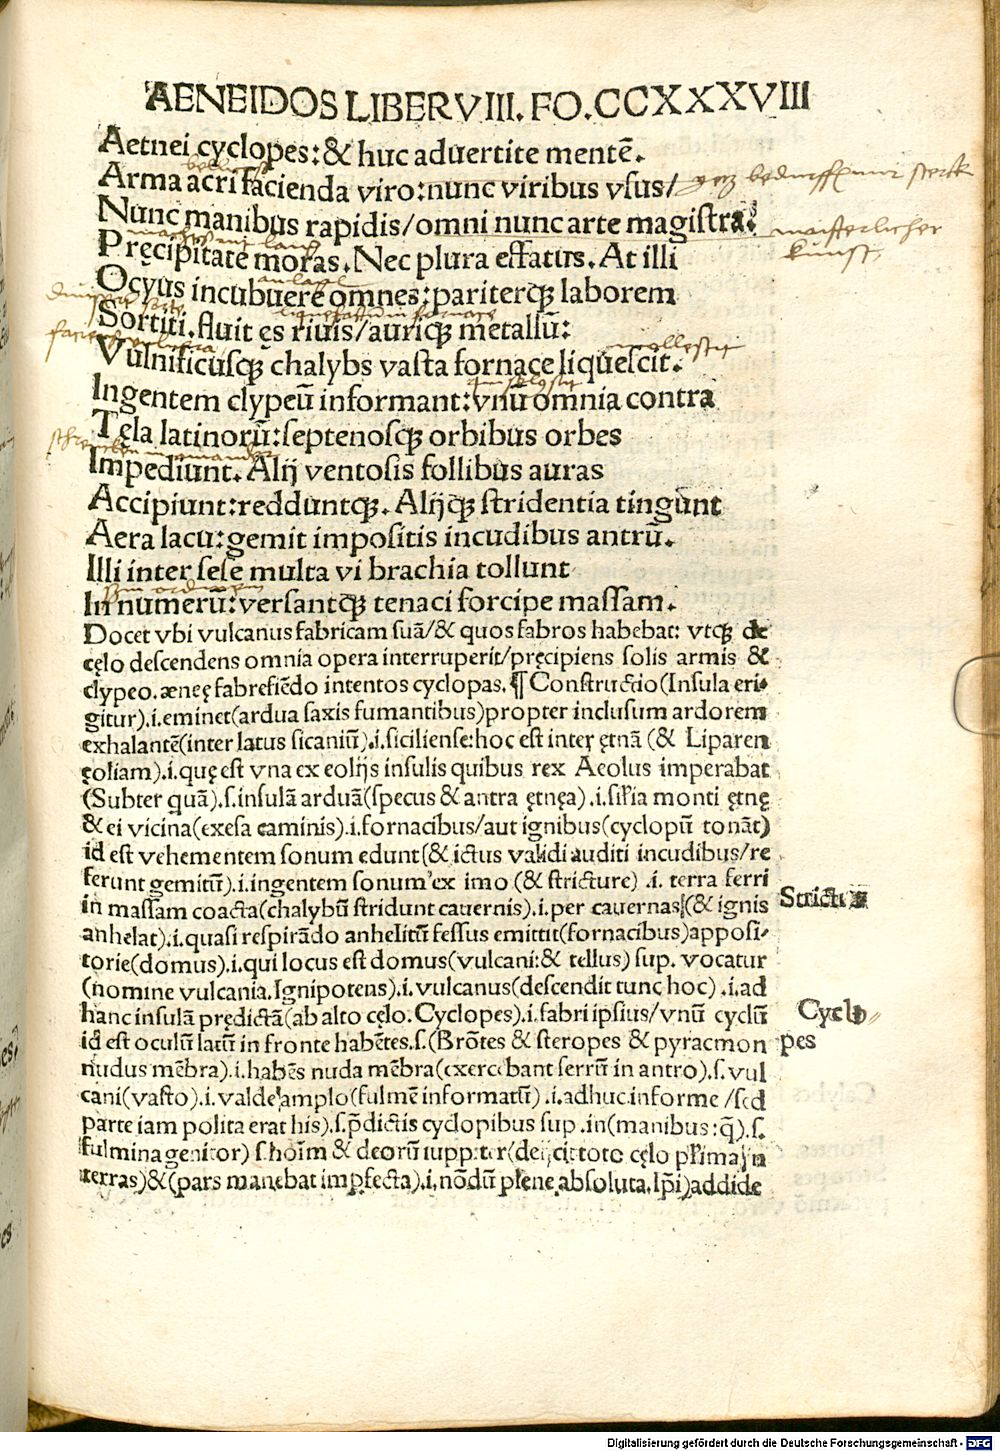 AENEIDOS LIBER VIII. FO. CCXXXVIII
Aetnei cyclopes: & huc aduertite mentē.
Arma acri facienda viro: nunc viribus vſus/
Nunc manibus rapidis/omni nunc arte magiſtra.
maiſterlicher
kunſt
Pręcipitate moras. Nec plura effatus. At illi
Ocyus incubuere omnes: pariterqꝫ laborem
Sortiti. fluit ęs riuis/auriqꝫ metallū:
Vulnificuſqꝫ chalybs vaſta fornace liqueſcit.
molleſcit
Ingentem clypeū informant: vnū omnia contra
Tela latinorū: ſeptenoſqꝫ orbibus orbes
Impediunt. Alij ventoſis follibus auras
Accipiunt: redduntqꝫ. Alijqꝫ ſtridentia tingunt
Aera lacu: gemit impoſitis incudibus antrū.
Illi inter ſeſe multa vi brachia tollunt
In numerū: verſantqꝫ tenaci forcipe maſſam.
Docet vbi vulcanus fabricam ſuā/& quos fabros habebat: vtqꝫ de
cęlo deſcendens omnia opera interruperit/pręcipiens ſolis armis &
clypeo. æneę fabrefiēdo intentos cyclopas. ¶ Conſtructio (Inſula eri-
gitur) .i. eminet (ardua ſaxis fumantibus) propter incluſum ardorem
exhalantē (inter latus ſicaniū) .i. ſicilienſe: hoc eſt inter ętnā (& Liparen
ęoliam) .i. quę eſt vna ex eolijs inſulis quibus rex Aeolus imperabat
(Subter quā) .ſ. inſulā arduā (ſpecus & antra ętnęa) .i. ſiꝉia monti ętnę
& ei vicina (exeſa caminis) .i. fornacibus/aut ignibus (cyclopū tonāt)
id eſt vehementem ſonum edunt (& ictus validi auditi incudibus/re
ferunt gemitū) .i. ingentem ſonum ex imo (& ſtricture) .i. terra ferri
in maſſam coacta (chalybū ſtridunt cauernis) .i. per cauernas (& ignis
Strictu
anhelat) .i. quaſi reſpirādo anhelitū feſſus emittit (fornacibus) appoſi-
torie (domus) .i. qui locus eſt domus (vulcani: & tellus) ſup. vocatur
(nomine vulcania. Ignipotens) .i. vulcanus (deſcendit tunc hoc) .i. ad
hanc inſulā prędictā (ab alto cęlo. Cyclopes) .i. fabri ipſius/vnū cyclū
Cyclo
id eſt oculū latū in fronte habētes .ſ. (Brōtes & ſteropes & pyracmon
pes
nudus mēbra) .i. habēs nuda mēbra (exercebant ferrū in antro) .ſ. vul
cani (vaſto) .i. valde amplo (fulmē informatū) .i. adhuc informe /ſed
parte iam polita erat his) .ſ. p̄dictis cyclopibus ſup. in (manibus: q̄) .ſ.
fulmina genitor) ſ. hoīm & deorū iuppiter (deijcit toto cęlo pꝉima in
terras) & (pars manebat impfecta) .i. nōdū plene abſoluta. Ip̄i) addide
Digitalisierung gefördert durch die Deutsche Forschungsgemeinschaft - DFG